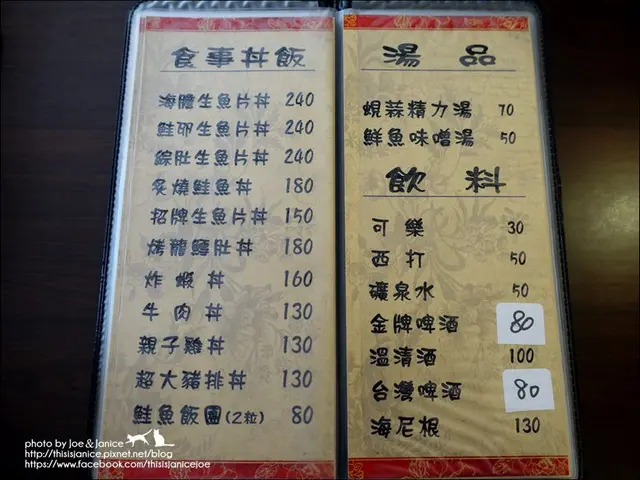 食事丼飯
海膽生魚片丼 240
鮭卵生魚片丼 240
綜肚生魚片丼 240
炙燒鮭魚丼 180
招牌生魚片丼 150
烤龍鱈肚丼 180
炸蝦丼 160
牛肉丼 130
親子雞丼 130
超大豬排丼 130
鮭魚飯團(2粒) 80
湯品
蜆蒜精力湯 70
鮮魚味噌湯 50
飲料
可樂 30
西打 50
礦泉水 50
金牌啤酒 80
溫清酒 100
台灣啤酒 80
海尼根 130
photo by Joe & Janice
http://thisisjanice.pixnet.net/blog
https://www.facebook.com/thisisjanicejoe